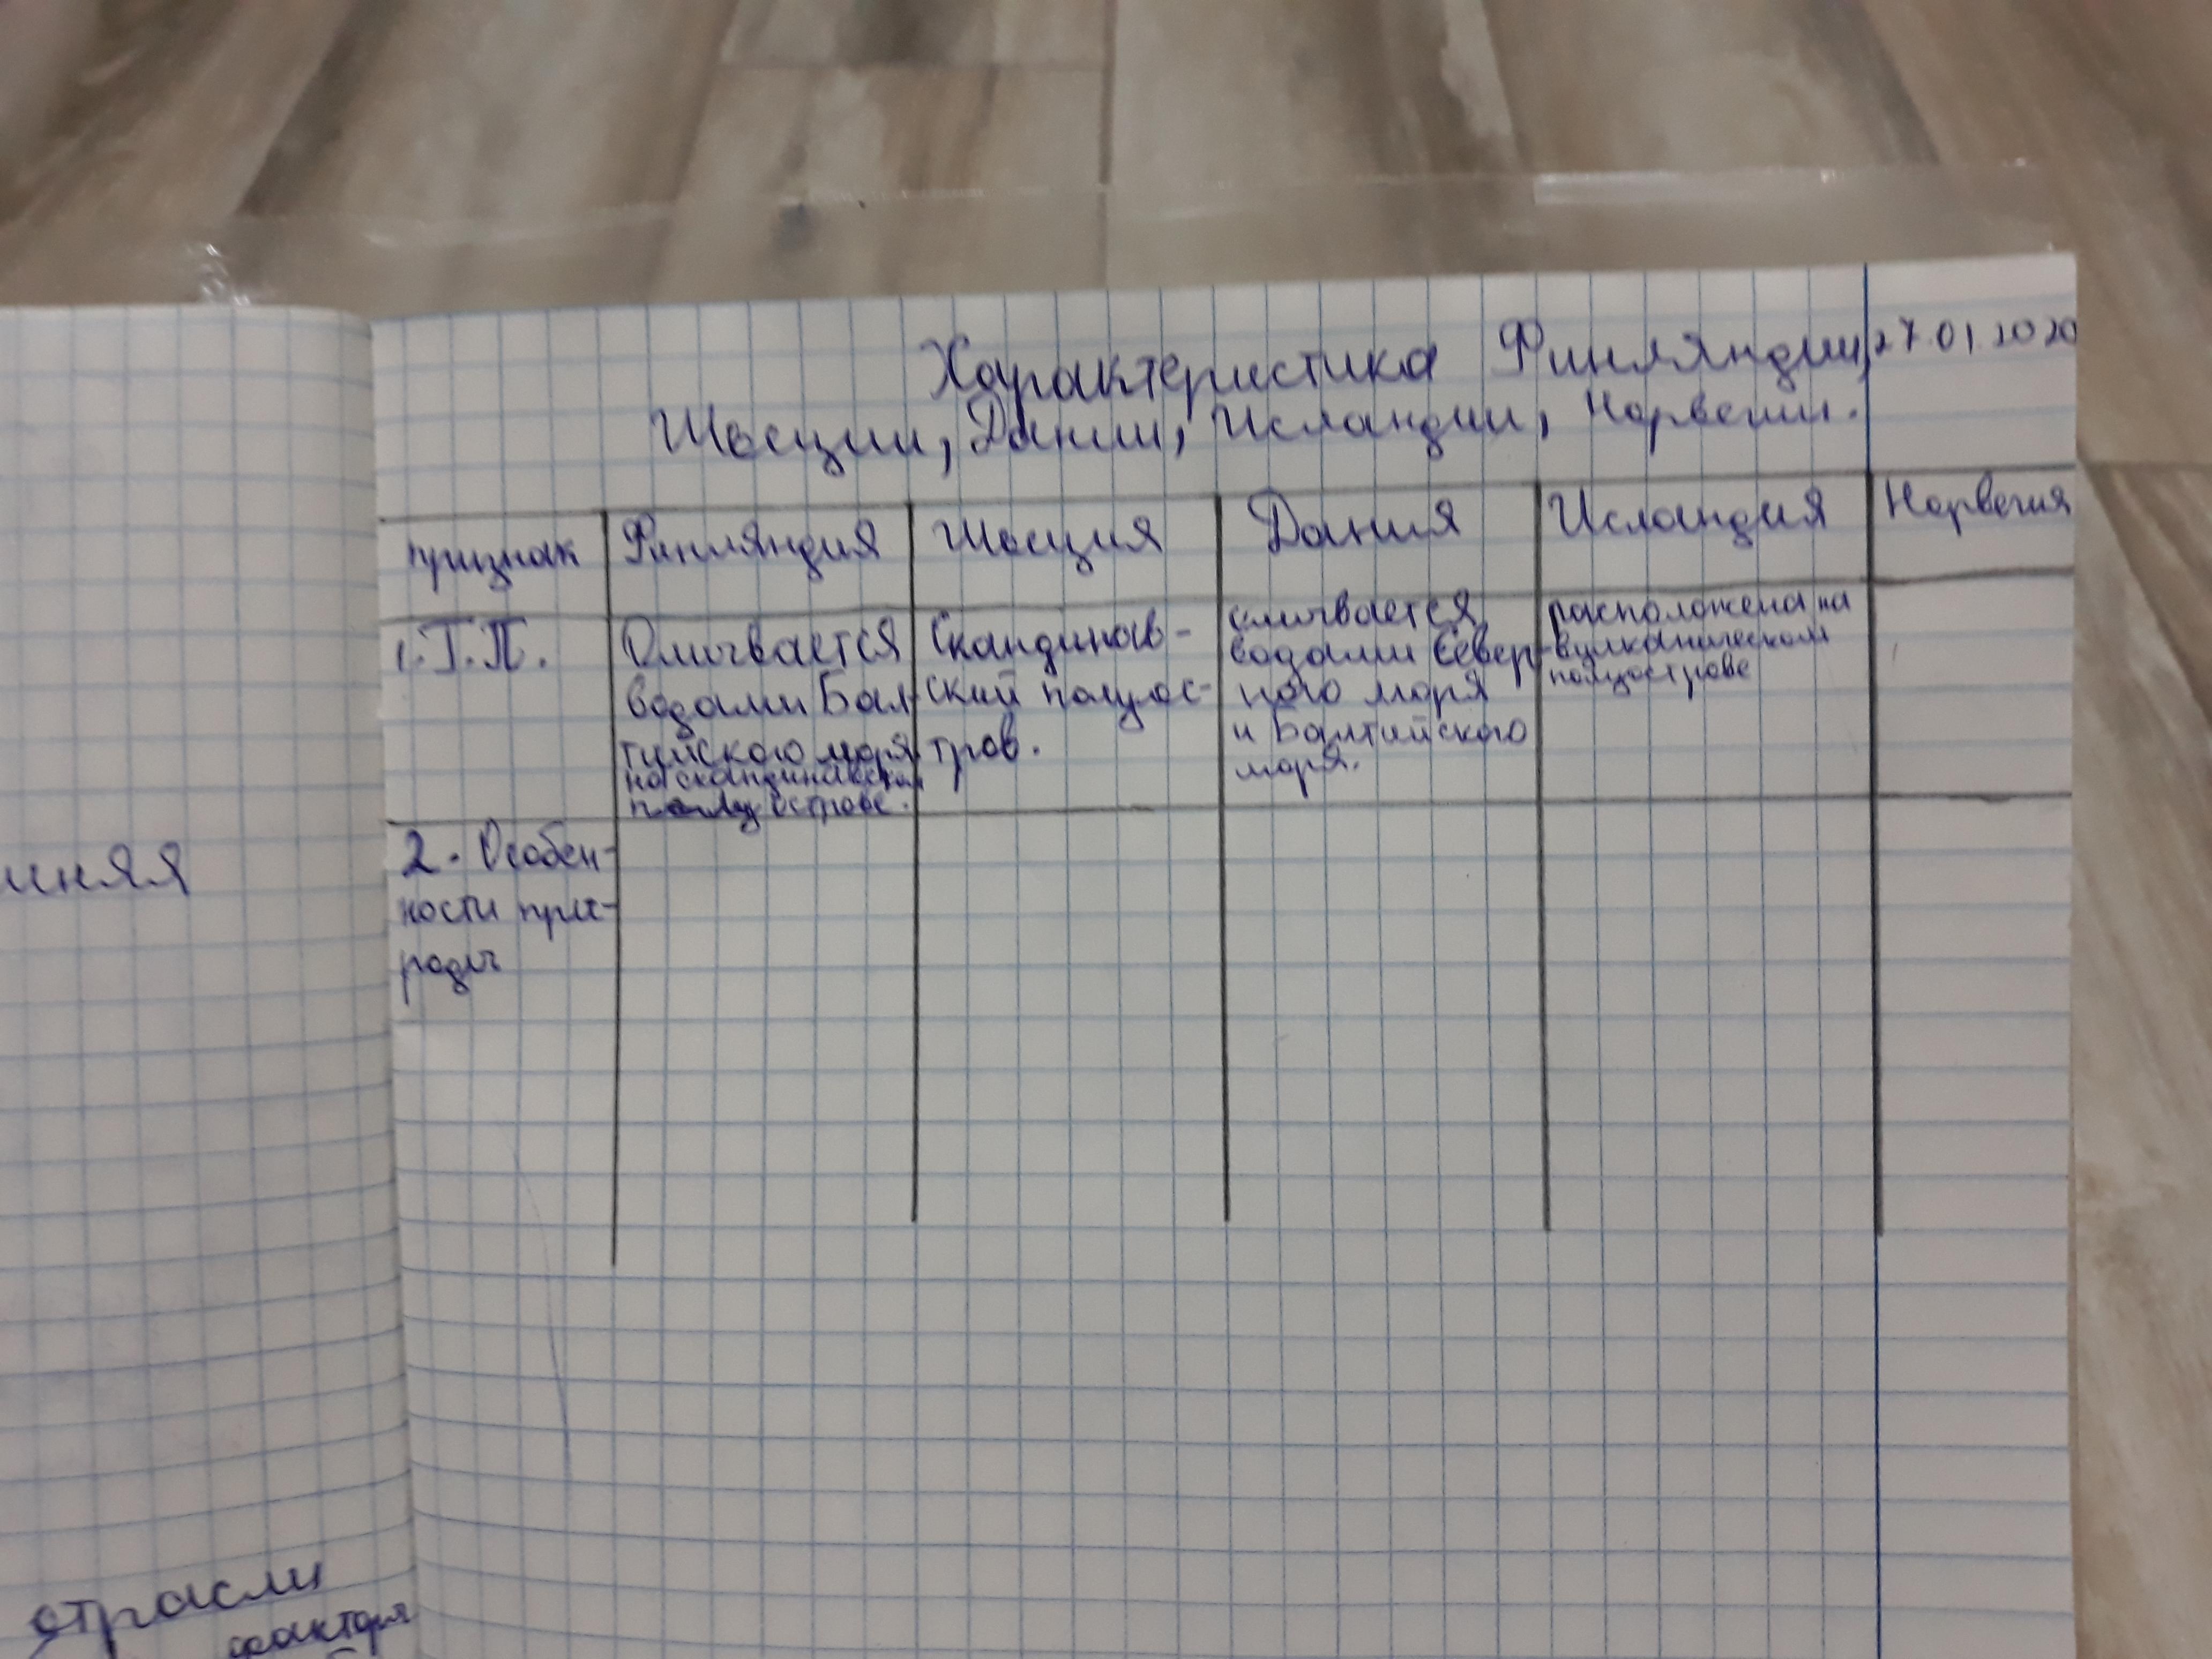 Характеристика Финляндии, 27.01.2020
Швеции, Дании, Исландии, Норвегии.
признак Финляндия Швеция Дания Исландия Норвегия
1. Г.П.
Омывается
водами Бал-
тийского моря
на скандинавском
полуострове.
Скандинав-
ский полуос-
тров.
омывается
водами Север-
ного моря
и Балтийского
моря.
расположена на
вулканическом
полуострове
2. Особен-
ности при-
роды
шняя
отрасли
фактори